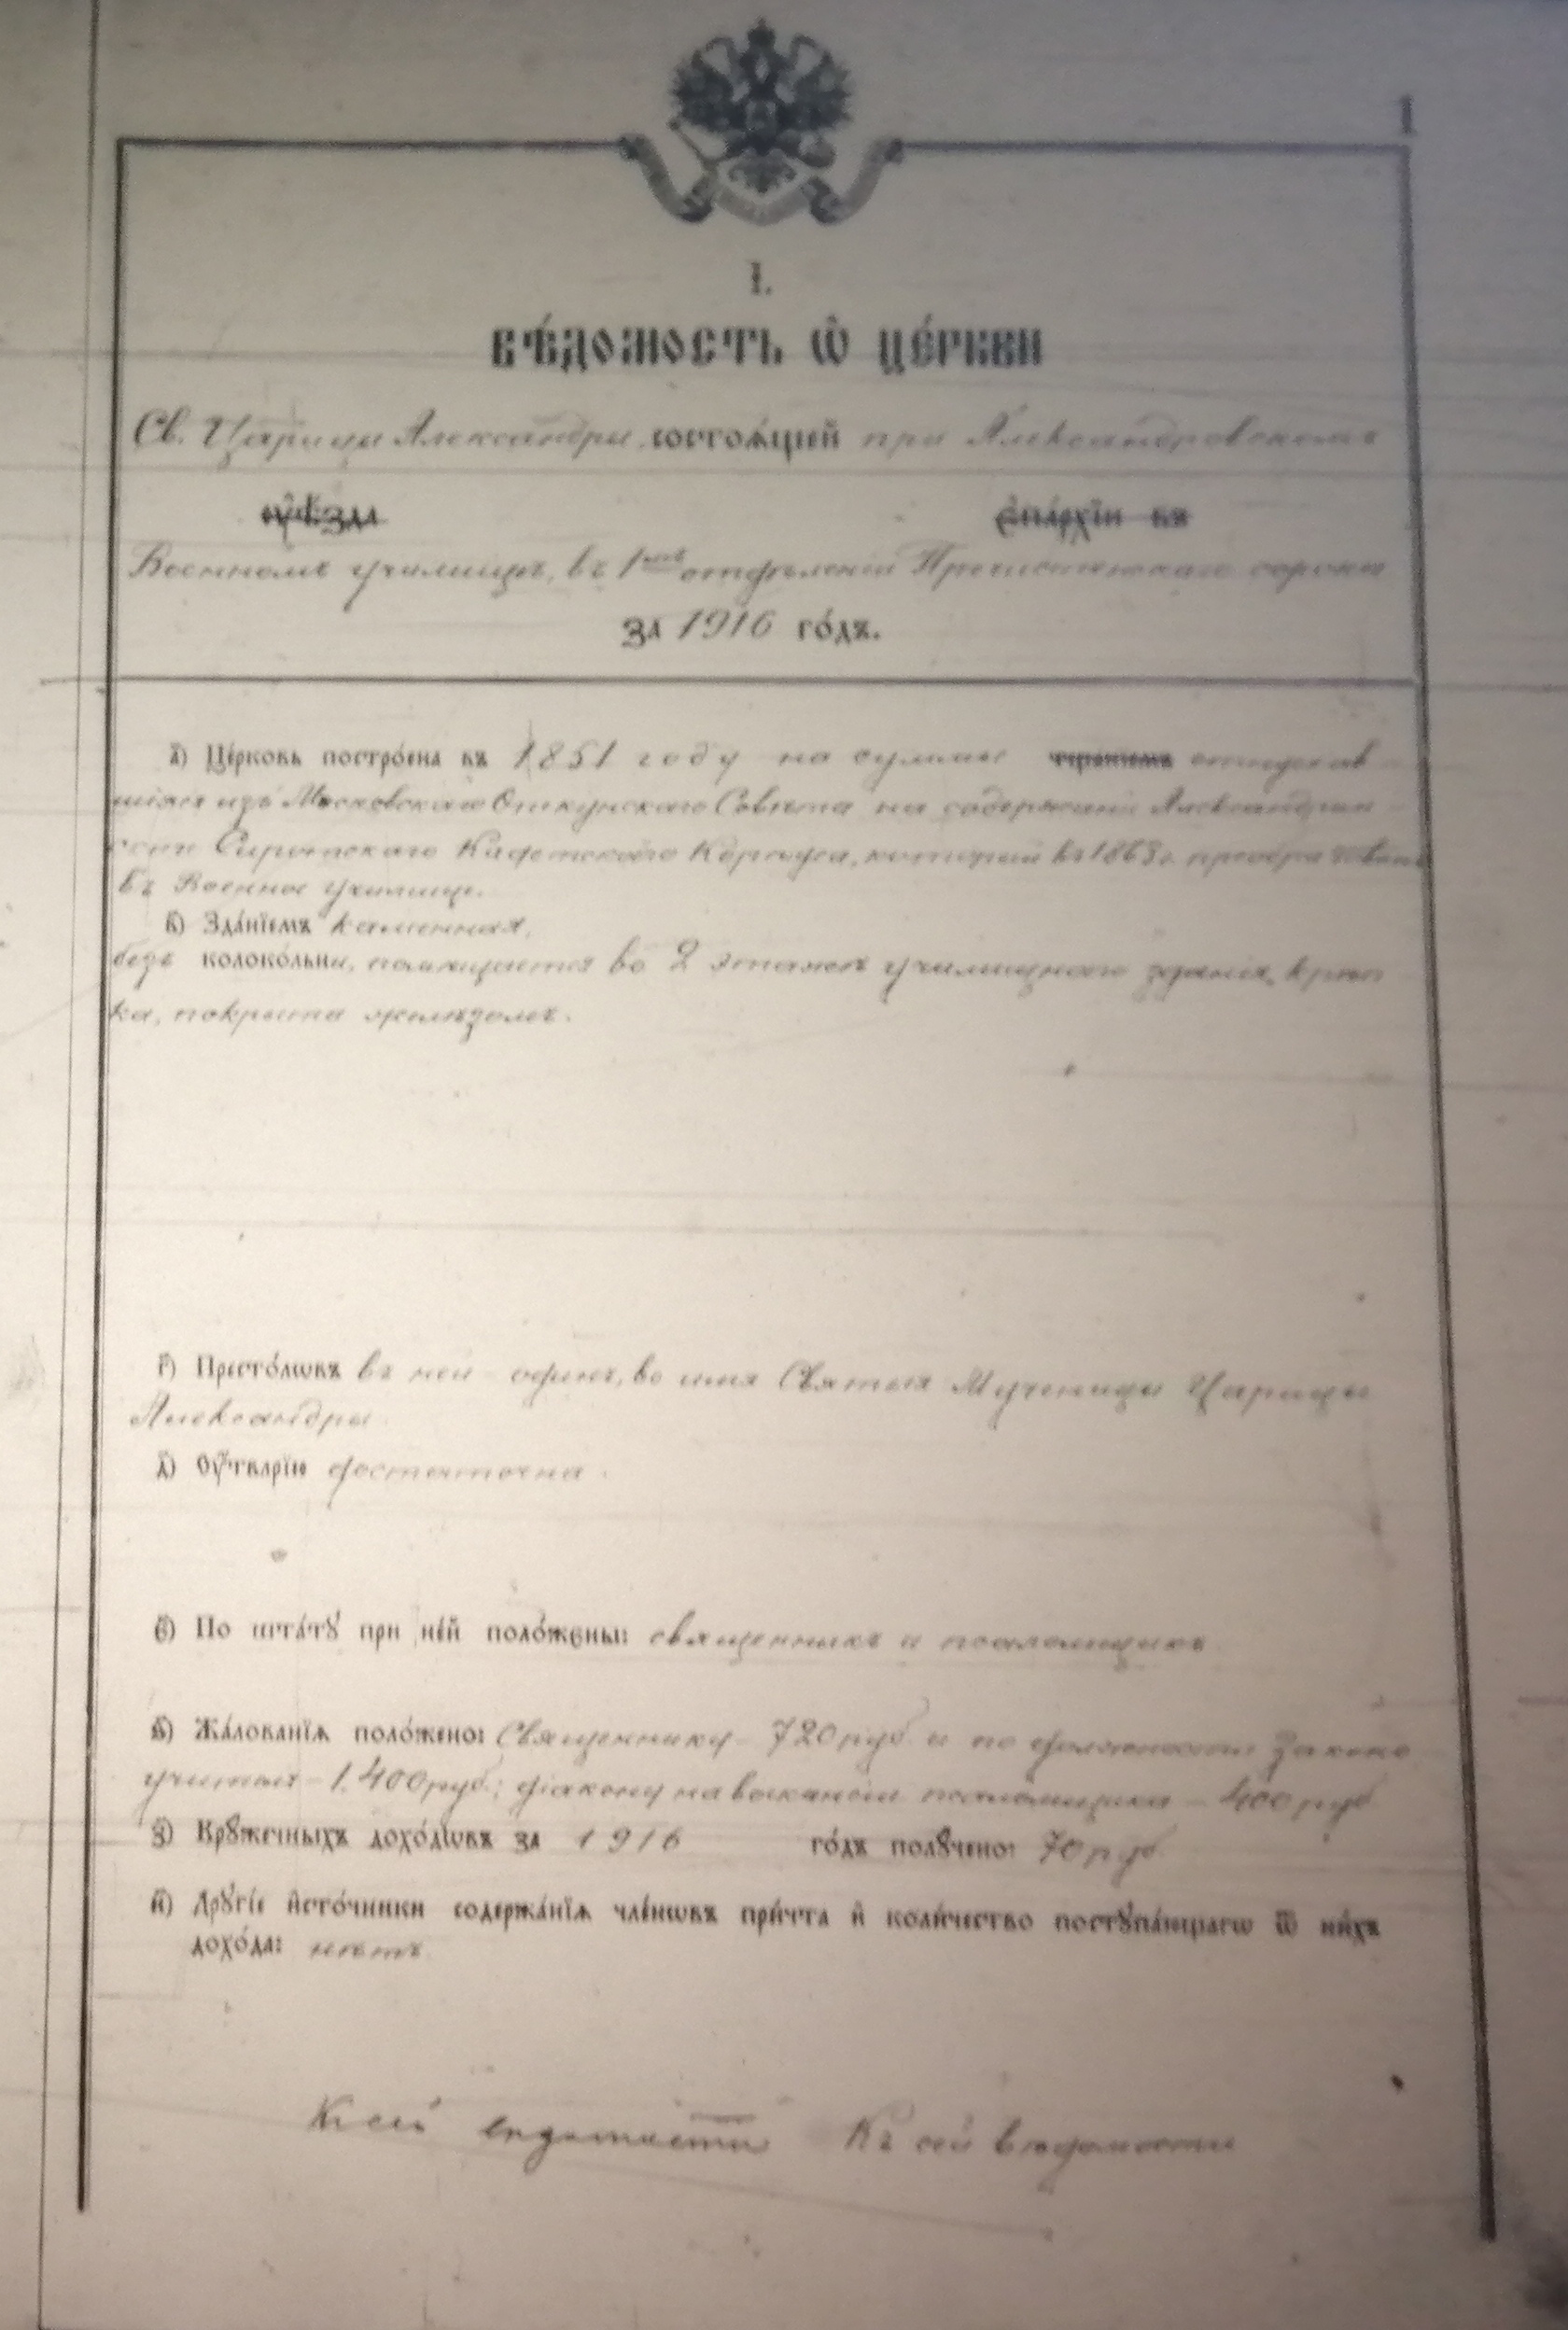 1
I.
вѣ́домость ѡ҆ це́ркви
Св. Царицы Александры состоѧ́щей при Александровскомъ
ᲂу҆ѣ́зда є҆па́рхїи въ
Военномъ училищѣ, въ 1мъ отдѣленіи Пречистенскаго сорока
за 1916 го́дъ.
а҃) Це́рковь постро́ена въ 1851 году на суммы тщанїемъ отпускав-
шіяся изъ Московскаго Опекунскаго Совѣта на содержаніе Александрин-
скаго Сиротскаго Кадетскаго Корпуса, который въ 1863 г. преобразованъ
въ Военное училище.
в҃) Зда́нїемъ каменная,
безъ колоко́льни, помѣщается во 2 этажѣ училищнаго зданія, крѣп-
ка, покрыта желѣзомъ.
г҃) Престо́лѡвъ въ ней одинъ, во имя Святыя Мученицы Царицы
Александры.
д҃) Оу҆́тварїю достаточна.
є҃) По шта́тꙋ при не́й поло́жены: священникъ и псаломщикъ
ѕ҃) Жа́лованїѧ поло́жено: Священнику – 720 руб. и по должности законо-
учителя – 1.400 руб.; діакону на вакансіи псаломщика – 400 руб
з҃) Крꙋ́жечныхъ дохо́дѡвъ за 1916 го́дъ полꙋ́чено: 70 руб.
и҃) Дрꙋгі́е и҆сто́чники содержа́нїѧ чле́нѡвъ при́чта и҆ коли́чество постꙋпа́ющагѡ ѿ ни́хъ
дохо́да: нѣтъ.
К сей ведомости Къ сей вѣдомости